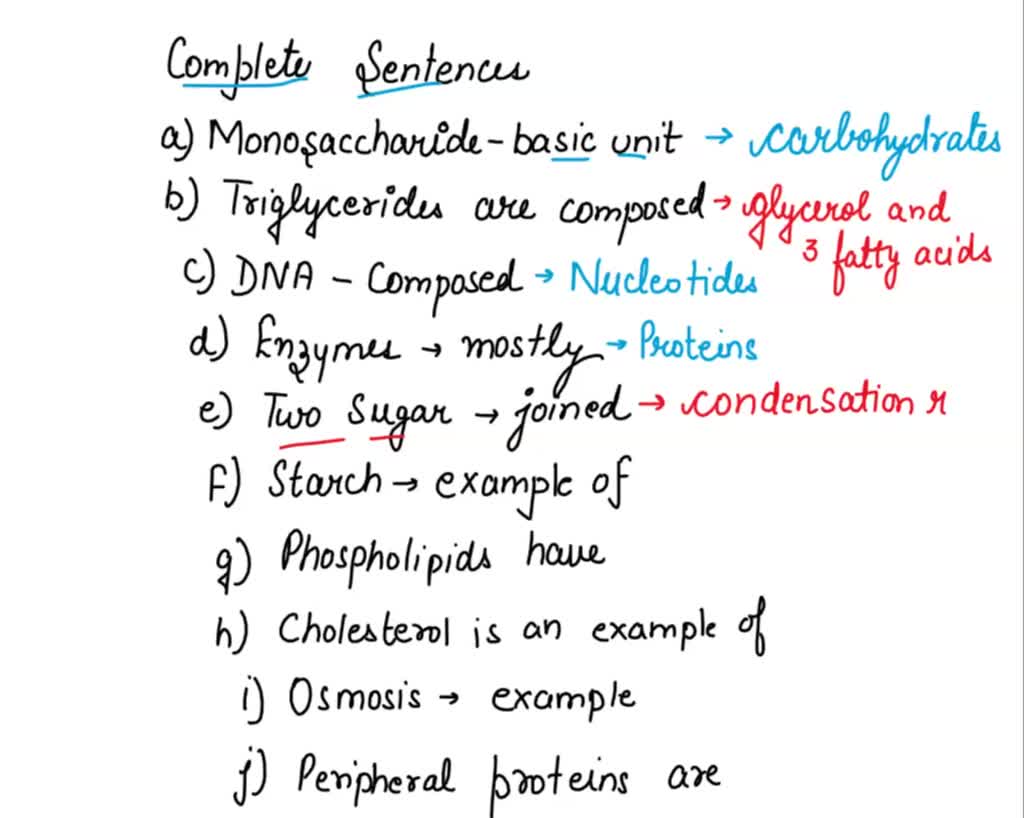 Complete Sentences
a) Monosaccharide - basic unit → carbohydrates
b) Triglycerides are composed → glycerol and
3 fatty acids
c) DNA - Composed → Nucleotides
d) Enzymes → mostly → Proteins
e) Two Sugar → joined → condensation r
f) Starch → example of
g) Phospholipids have
h) Cholesterol is an example of
i) Osmosis → example
j) Peripheral proteins are